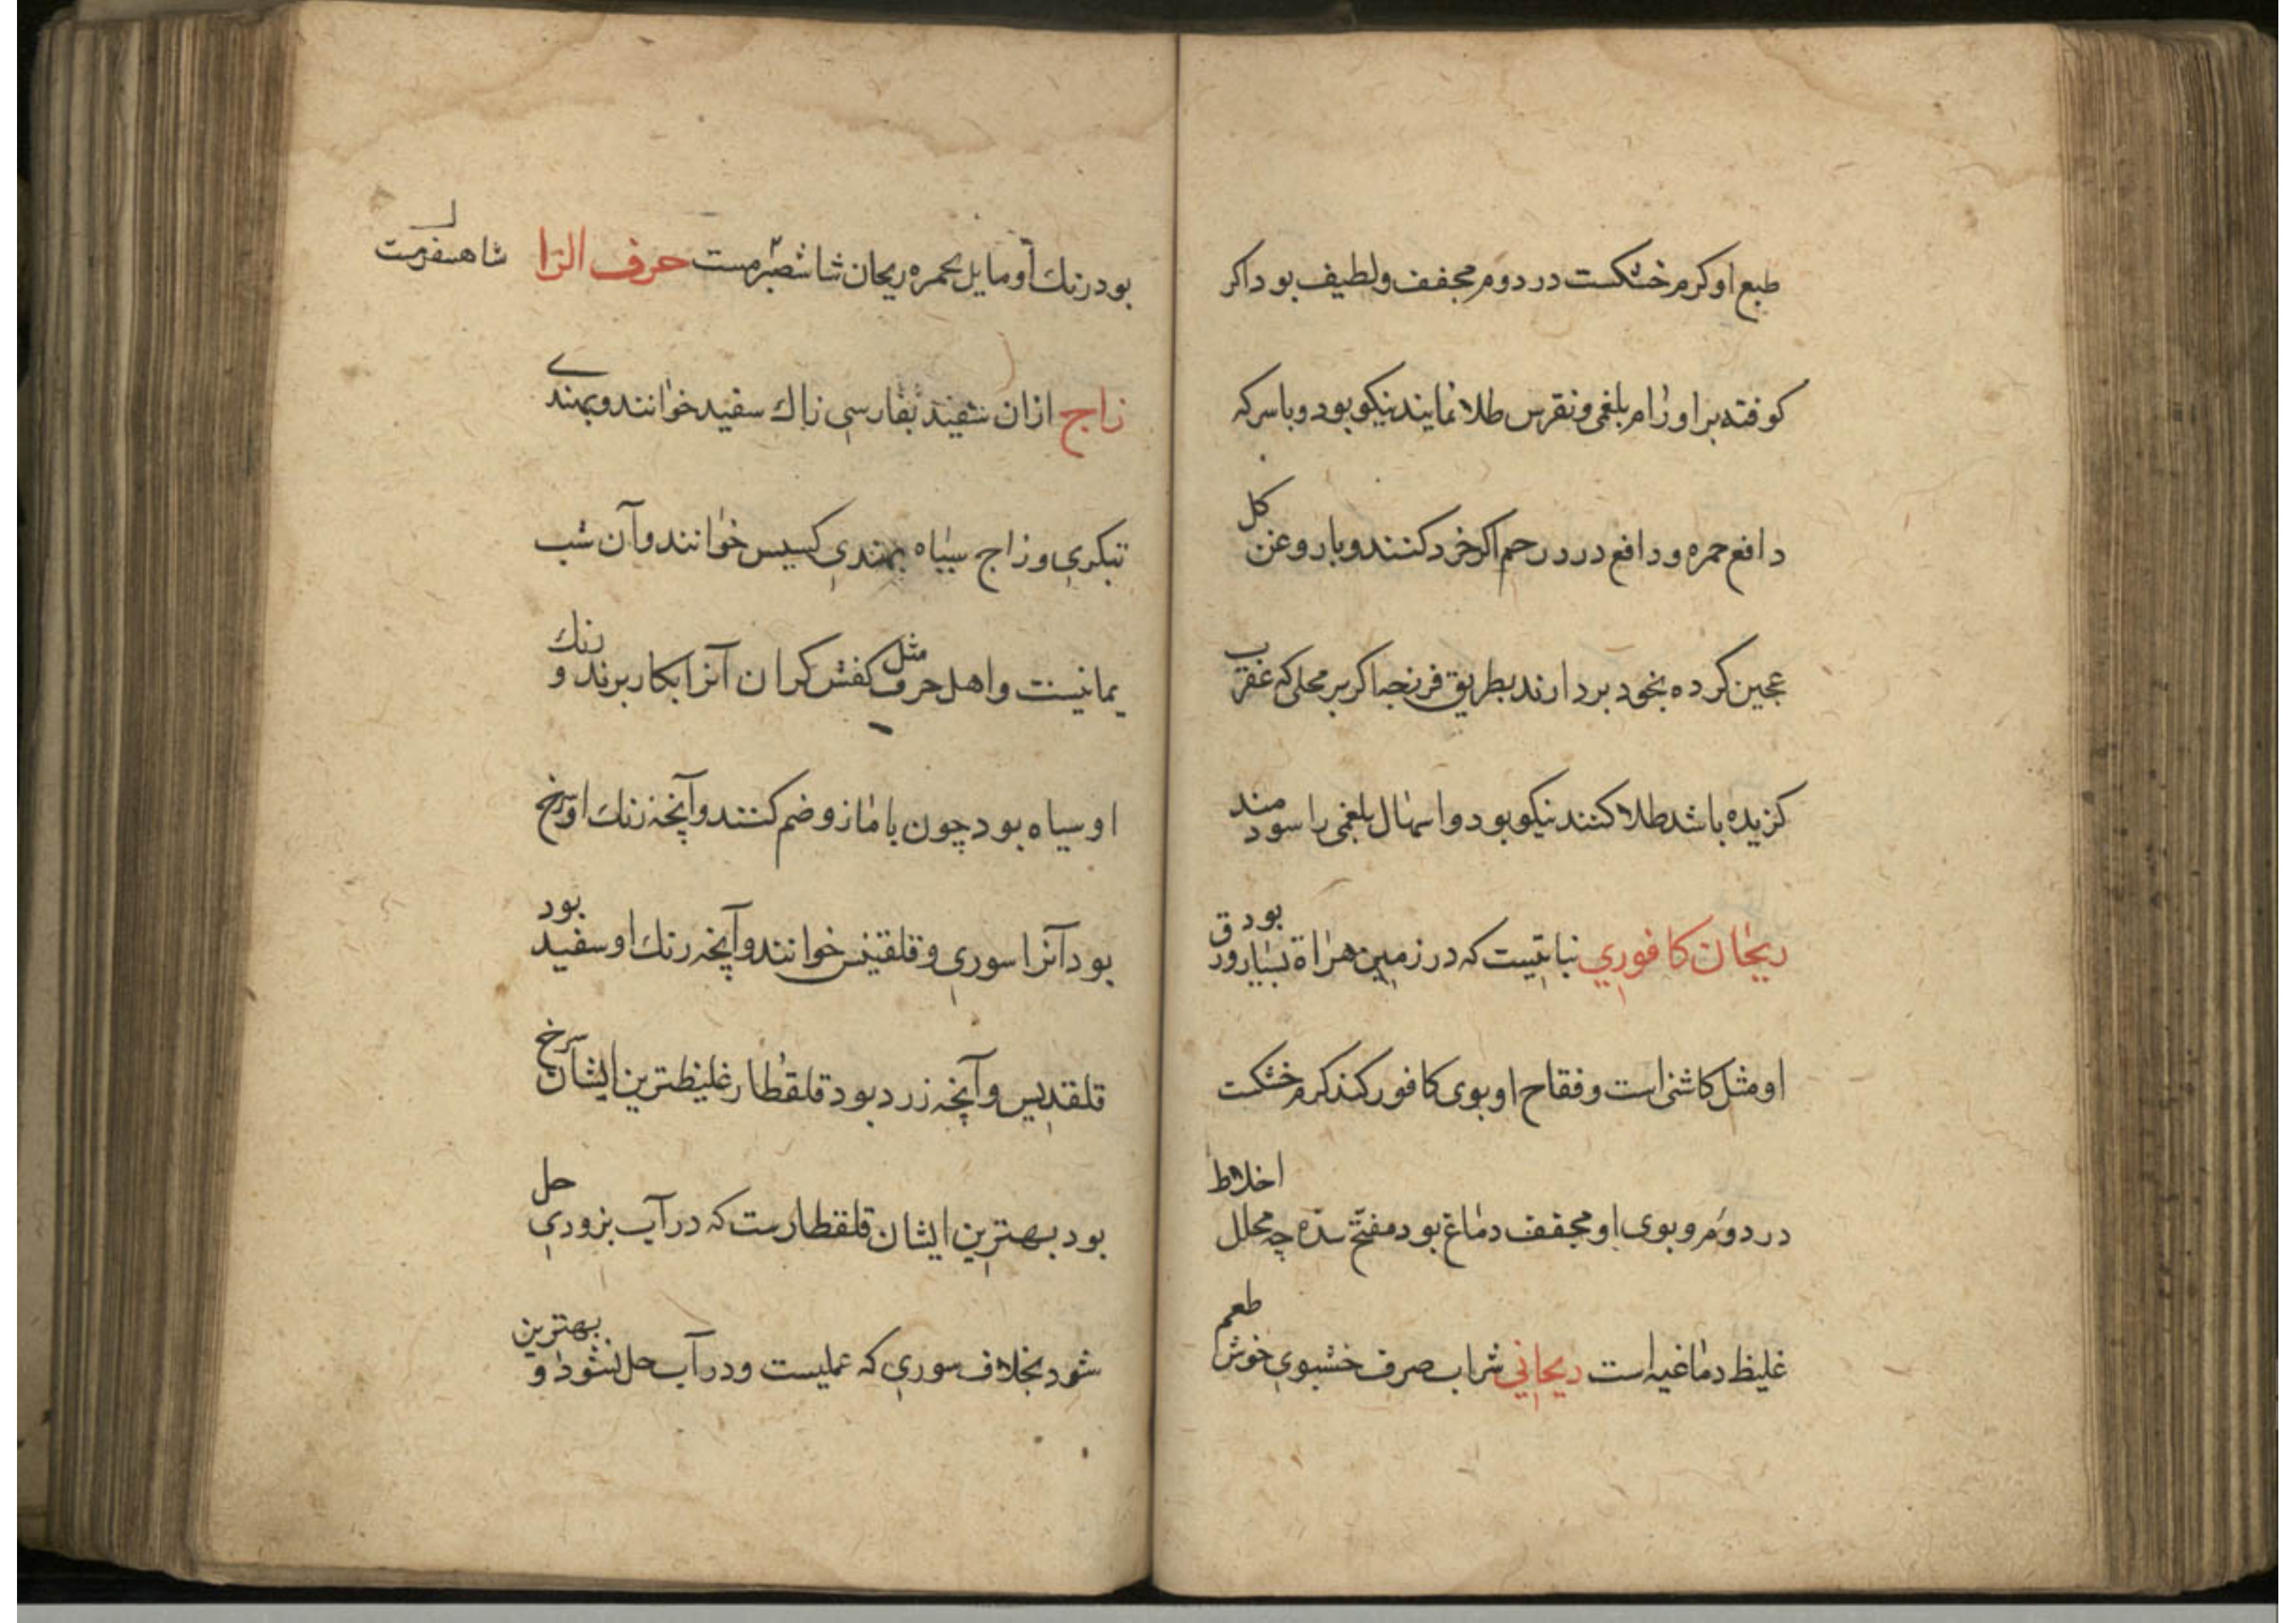 طبع او كرم خشكست در دوم مجفف ولطيف بود اكر
كوفته بر اورام بلغمی ونقرس طلا نمايند نيكو بود وباسركه
دافع حمره ودافع درد رحم اكر خرد كنند وبا روغن كل
عجين كرده بخود بردارند بطريق فرزجه اكر بر محلی كه عقرب
كزيده باشد طلا كنند نيكو بود واسهال بلغمی را سود مند
ريحان كافوري نباتيست كه در زمين هراة بسيار بود ورق
او مثل كاشنی است وفقاح او بوی كافور كند كرم خشكست
در دوم وبوی او مجفف دماغ بود مفتح سده چه محلل اخلاط
غليظ دماغيه است ريحاني شراب صرف خشبوي خوش طعم
بود رنك او مايل بحمره ريحان شاهصبرمست حرف الزا
شاهسفرمست
زاج ازان سفيد بفارسي زاك سفيد خوانند وبهندے
تبكري وزاج سياه بهندي كسيس خوانند وآن شب
يمانيست واهل حرف مثل كفش كران آنرا بكار برند ورنك
او سياه بود چون با مازو ضم كنند وآنچه رنك او سرخ
بود آنرا سوري وقلقيس خوانند وآنچه رنك او سفيد بود
قلقديس وآنچه زرد بود قلقطار غليظترين ايشان سرخ
بود بهترين ايشان قلقطارست كه در آب بزودي حل
شود بخلاف سوري كه عمليست ودر آب حل نشود وبهترين